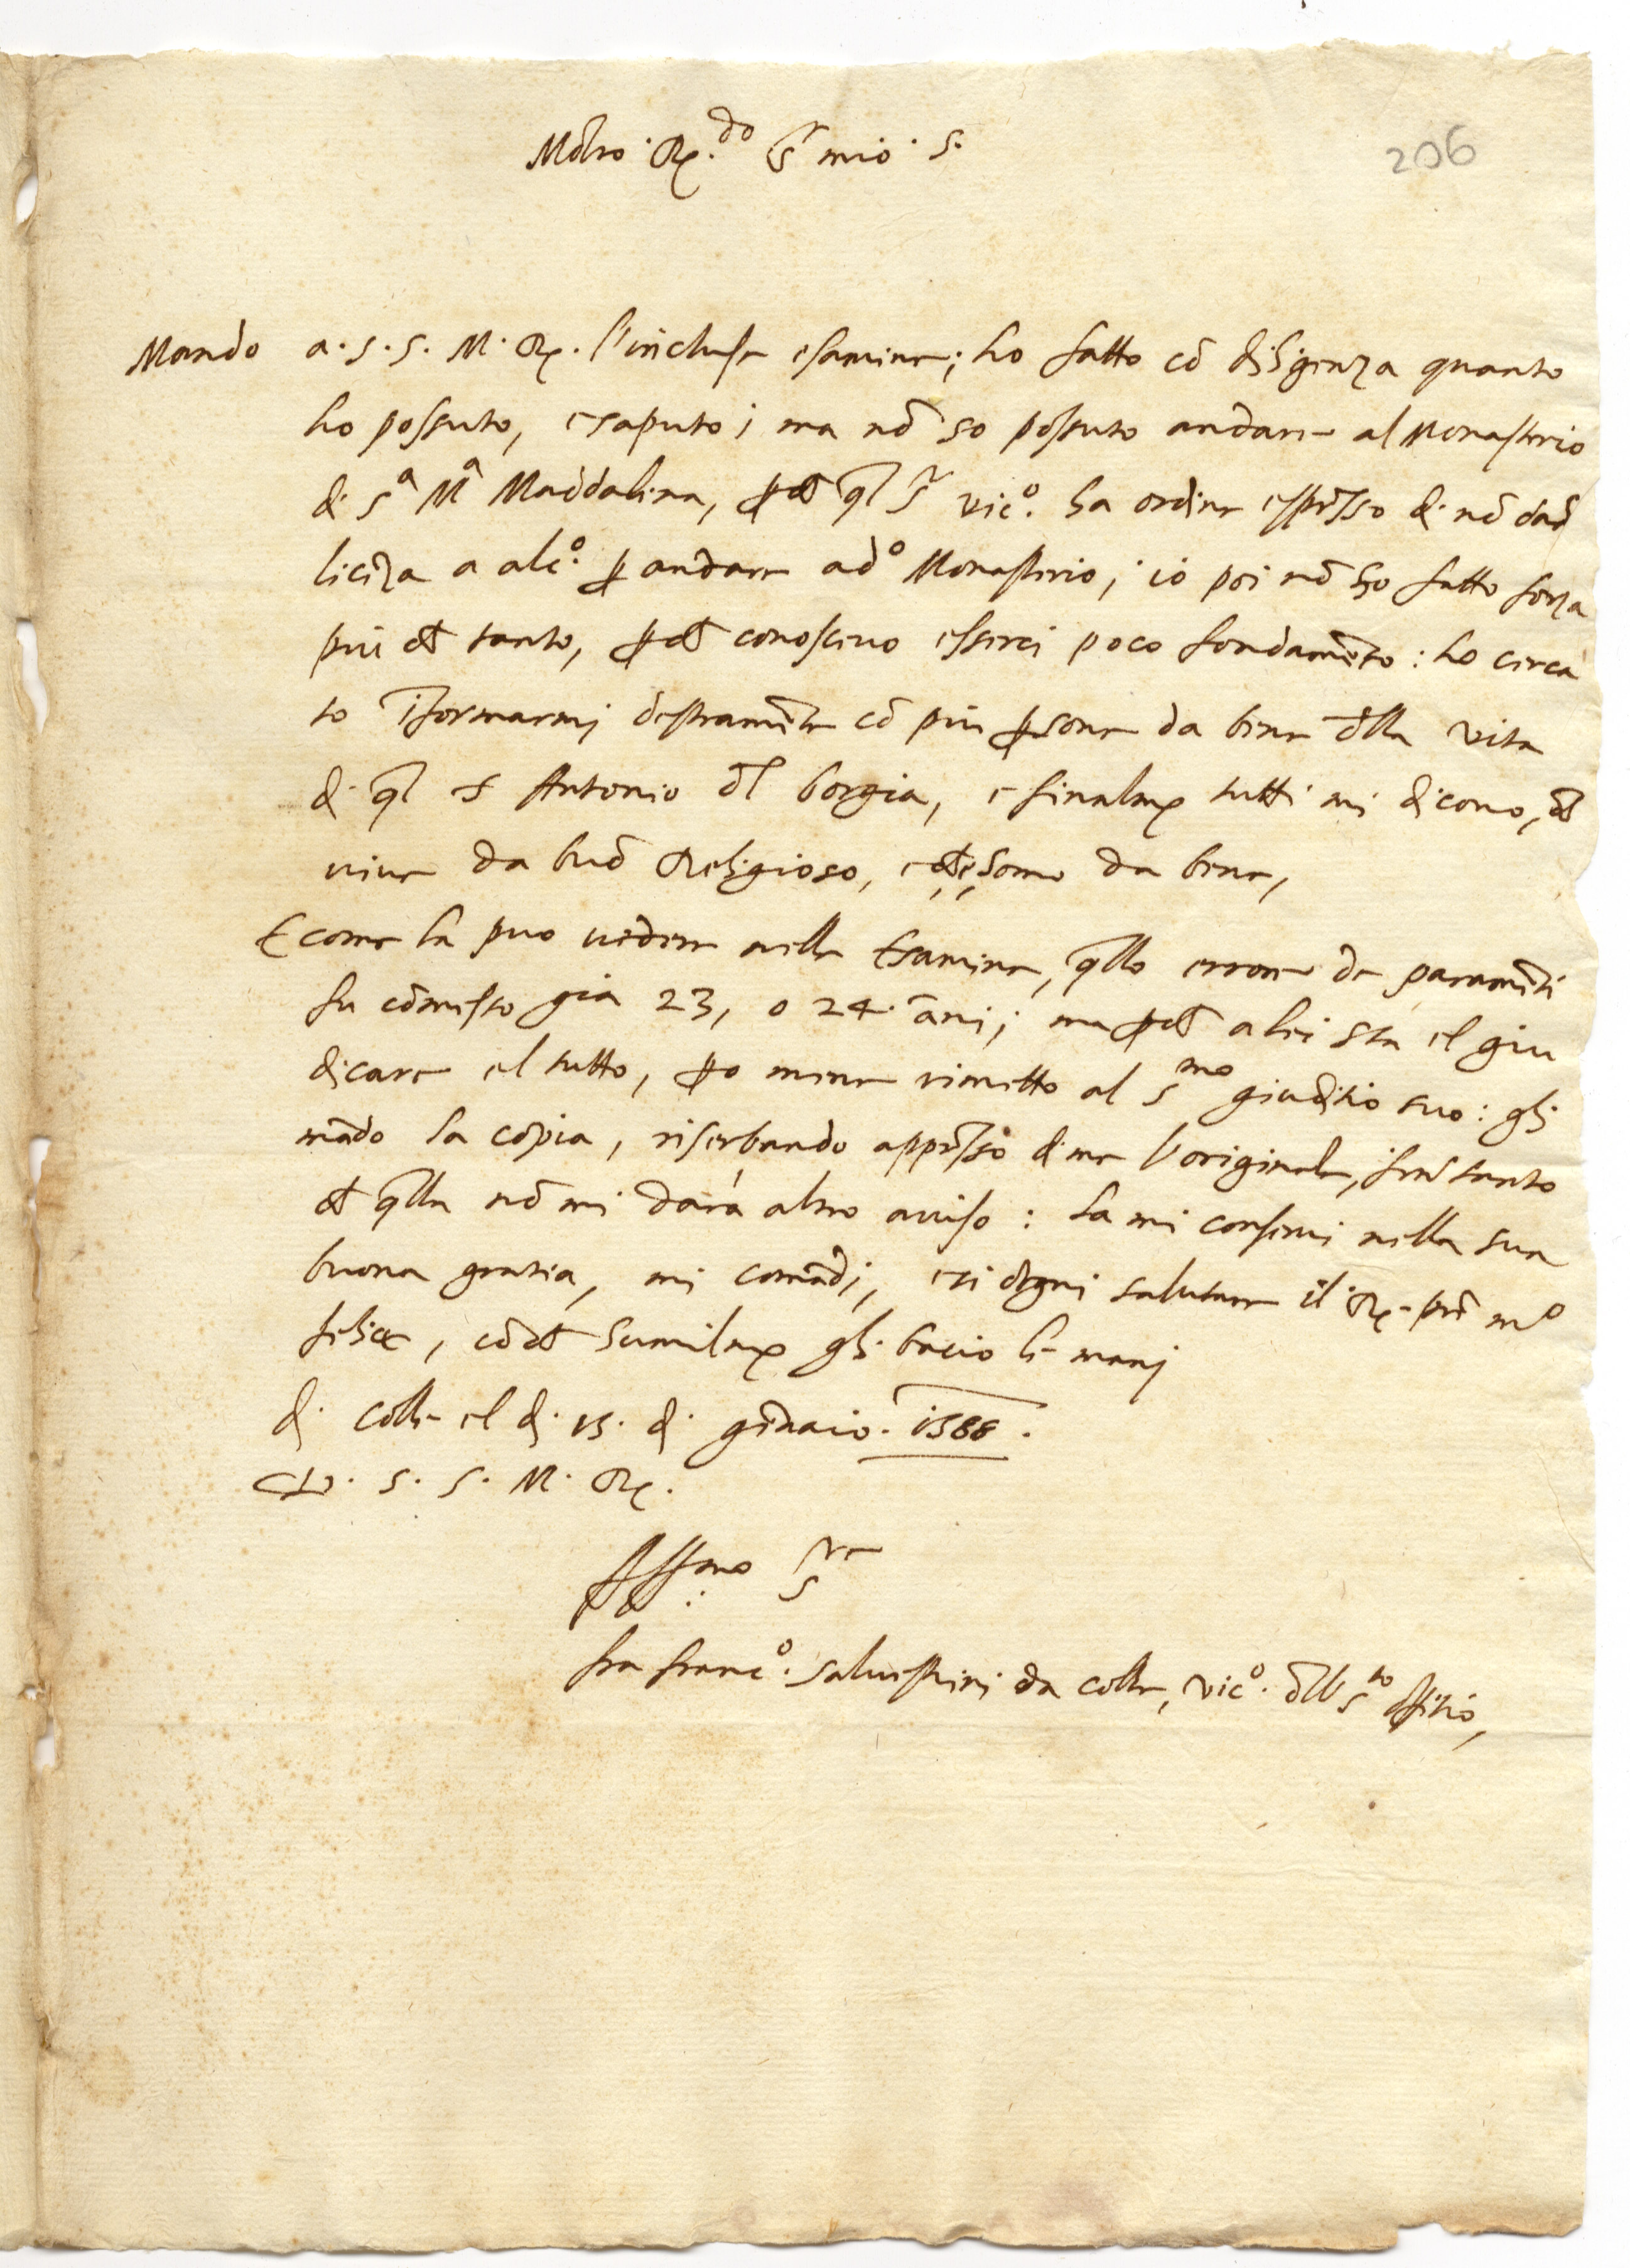 Molto R.do Sr mio S.
206
Mando a. S. S. M. R. l'incluse esamine; ho fatto cō diligenza quanto
ho possuto, e saputo; ma nō so possuto andare al Monasterio
di Sa Ma Maddalena, p̱ch ql Sr vico. ha ordine esprēsso di nō dar
licēza a alco. p̱ andare a do Monasterio; io poi nō ho fatto forza
piu ch tanto, p̱ch conoscevo esserci poco fondamēto: ho cerca
to īformarmj destramēte cō piu p̱sone da bene dlla vita
di ql S Antonio dl borgia, e finalmē tutti mi dicono, ch
vive da buō Religioso, e da homo da bene,
E come la puo vedere nelle Esamine, qllo errore de paramēti
fu cōmesso gia 23, o 24. āni; ma p̱ch a lei sta el giu
dicare el tutto, p̱o mene rimetto al Smo giuditio suo: gli
mādo la cōpia, riserbando apprēsso di me l'originale,
ch qlla nō mi darà altro aviso: la mi conservi nella sua
buona gratia, mi comādi, e si degni salutare il R. prē mo
felice, cō ch humilmē gli bacio le manj
di Colle el di 15. di gēnaio. 1588.
D. S. S. M. R.
Affmo Sre
fra franco. salvestrini da colle, vico. dll Sto offitio,